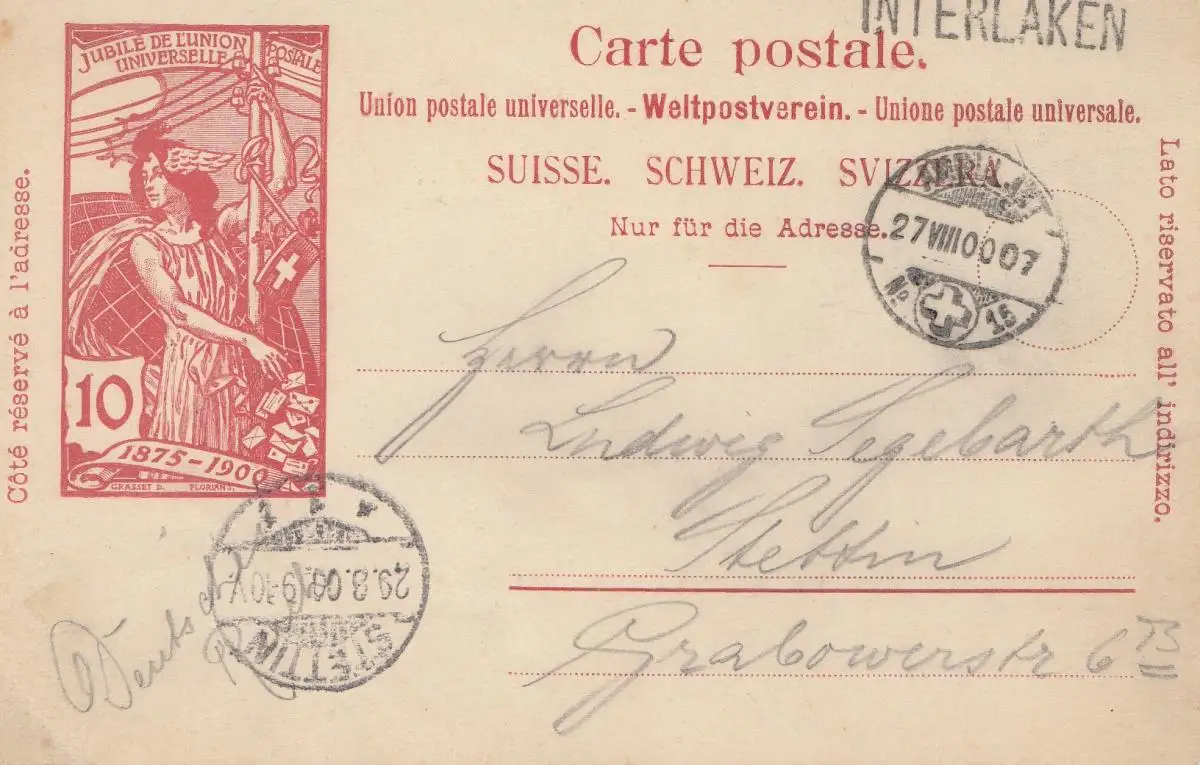 INTERLAKEN
JUBILÉ DE L'UNION
POSTALE
UNIVERSELLE
Carte postale.
Union postale universelle. - Weltpostverein. - Unione postale universale.
SUISSE. SCHWEIZ. SVIZZERA.
Nur für die Adresse.
Côté réservé à l'adresse.
Lato riservato all' indirizzo.
27 VIII 00 07
No. 15
10
1875-1900
GRASSET D. FLORIAN S.
Herrn
Ludwig Segebarth
Stettin
Grabowerstr 6 B
STETTIN
29.8.00 9-10V